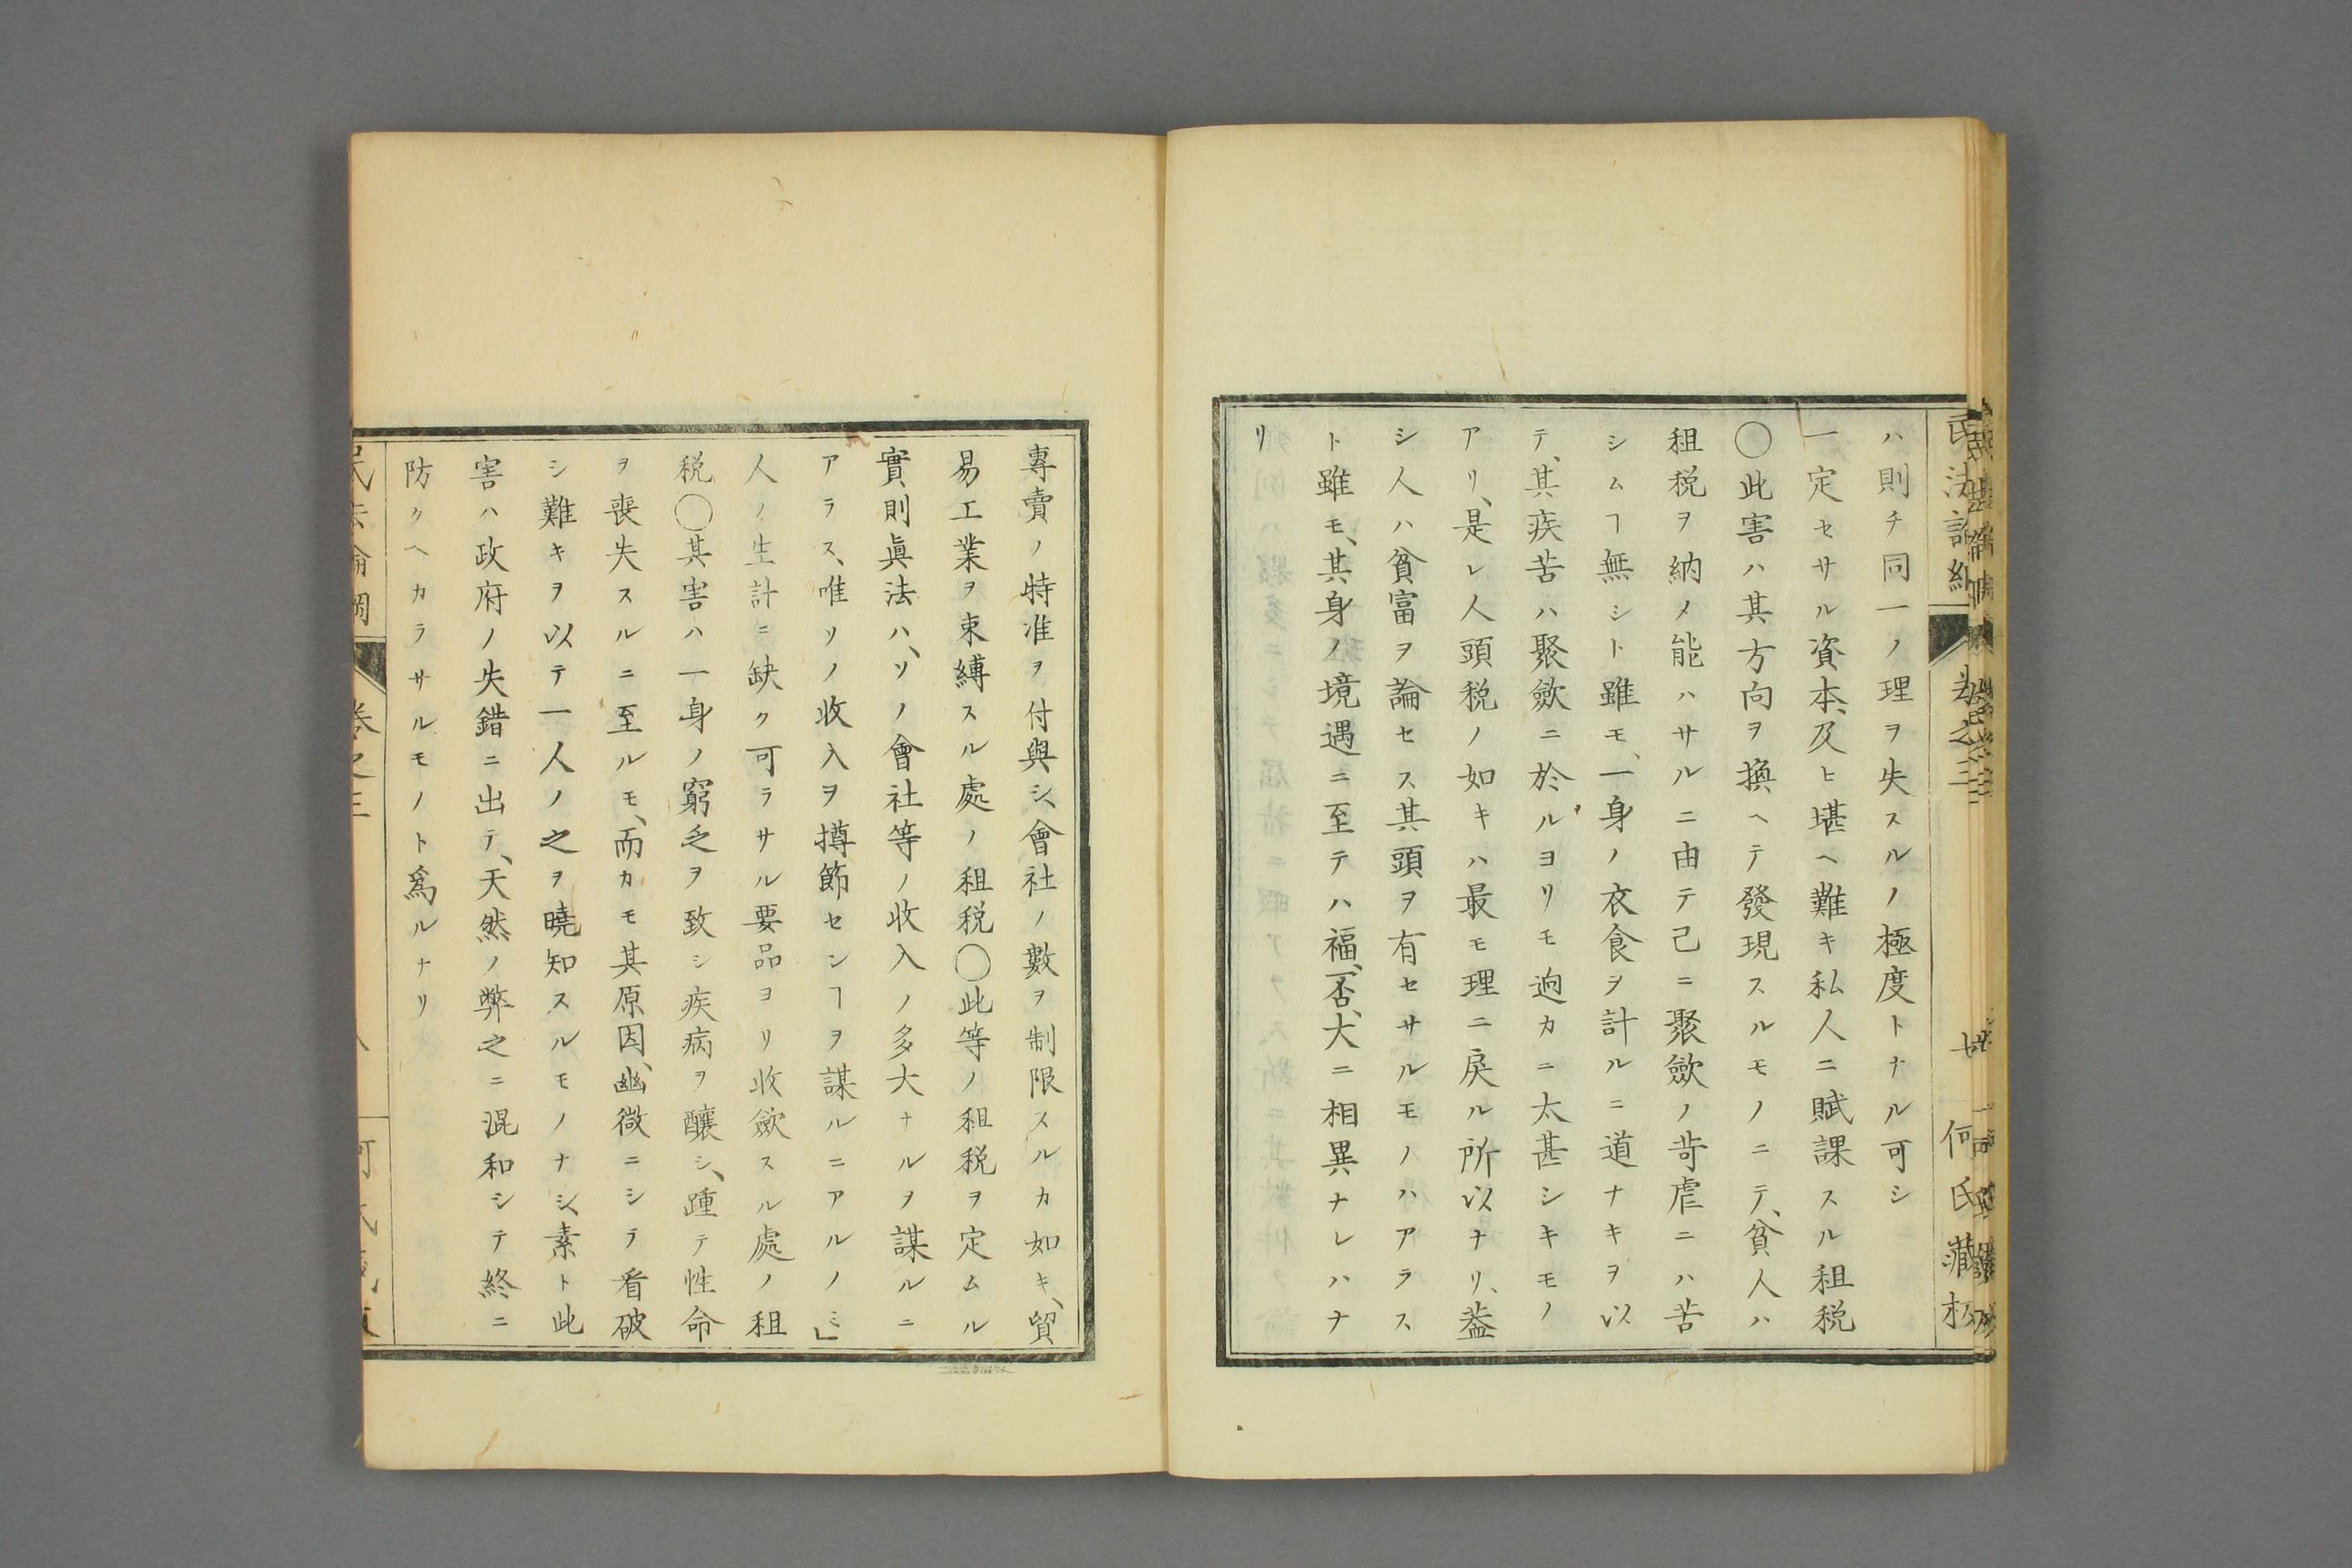 ハ則チ同一ノ理ヲ失スルノ極度トナル可シ
一定セサル資本、及ヒ堪ヘ難キ私人ニ賦課スル租税
〇此害ハ其方向ヲ換ヘテ發現スルモノニテ、貧人ハ
租税ヲ納メ能ハサルニ由テ己ニ聚斂ノ苛虐ニハ苦
シムヿ無シト雖モ、一身ノ衣食ヲ計ルニ道ナキヲ以
テ、其疾苦ハ聚斂ニ於ルヨリモ逈カニ太甚シキモノ
アリ、是レ人頭税ノ如キハ最モ理ニ戾ル所以ナリ、蓋
シ人ハ貧富ヲ論セス其頭ヲ有セサルモノハアラス
ト雖モ、其身ノ境遇ニ至テハ福、否、大ニ相異ナレハナ
リ
專賣ノ特准ヲ付與シ、會社ノ數ヲ制限スルカ如キ、貿
易工業ヲ束縛スル處ノ租税〇此等ノ租税ヲ定ムル
實則眞法ハ、ソノ會社等ノ收入ノ多大ナルヲ謀ルニ
アラス、唯ソノ收入ヲ撙節センヿヲ謀ルニアルノミ」
人ノ生計ニ缺ク可ラサル要品ヨリ收斂スル處ノ租
税〇其害ハ一身ノ窮乏ヲ致シ疾病ヲ釀シ、踵テ性命
ヲ喪失スルニ至ルモ、而カモ其原因、幽微ニシテ看破
シ難キヲ以テ一人ノ之ヲ曉知スルモノナシ、素ト此
害ハ政府ノ失錯ニ出テ、天然ノ弊之ニ混和シテ終ニ
防クヘカラサルモノト爲ルナリ
民法論綱 卷之三